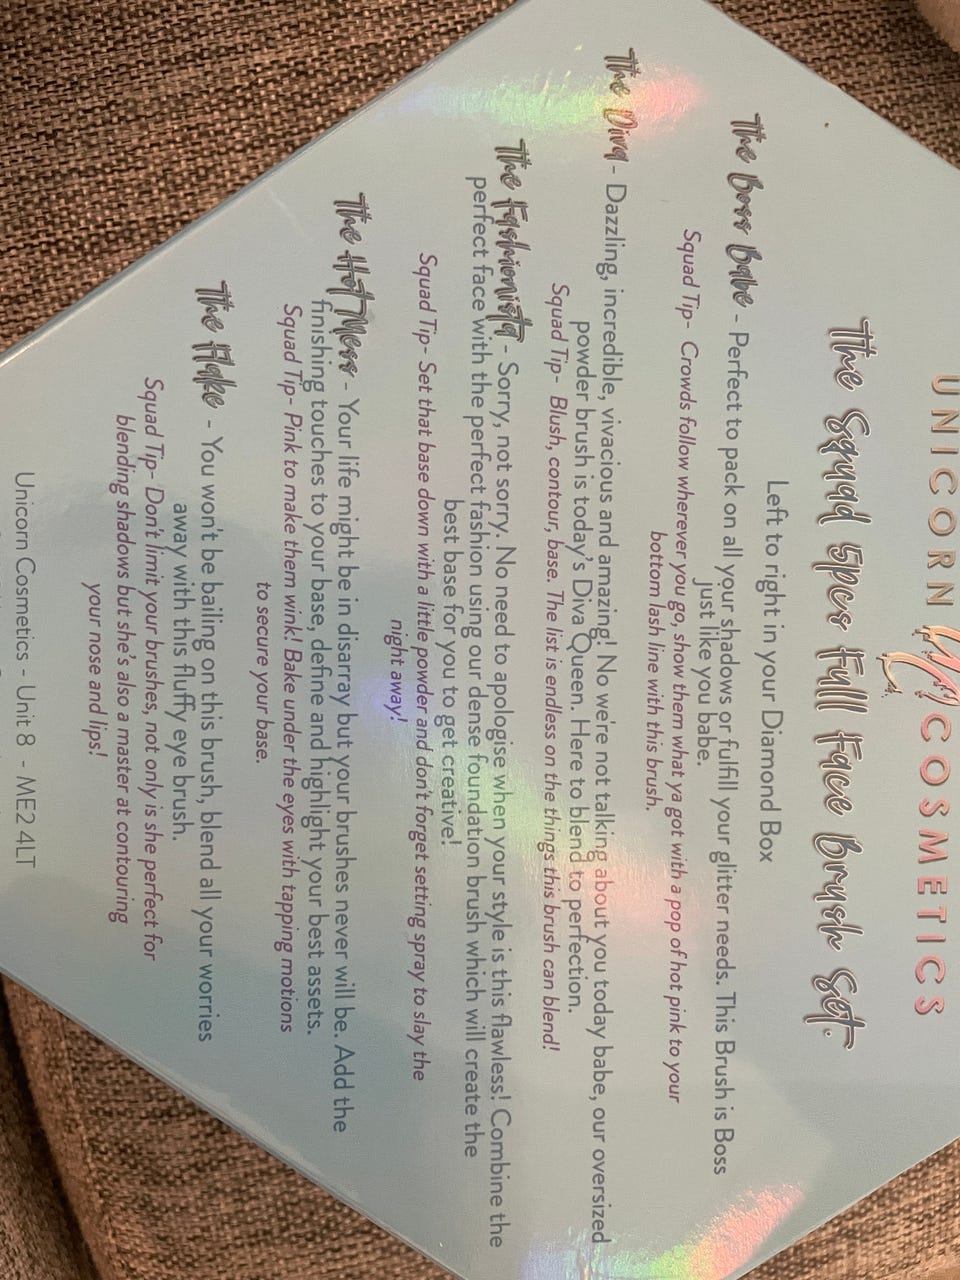 UNICORN COSMETICS
The Squad 5pcs Full Face Brush Set.
Left to right in your Diamond Box
The Boss Babe - Perfect to pack on all your shadows or fulfill your glitter needs. This Brush is Boss
just like you babe.
Squad Tip- Crowds follow wherever you go, show them what ya got with a pop of hot pink to your
bottom lash line with this brush.
The Diva - Dazzling, incredible, vivacious and amazing! No we're not talking about you today babe, our oversized
powder brush is today's Diva Queen. Here to blend to perfection.
Squad Tip- Blush, contour, base. The list is endless on the things this brush can blend!
The Fashionista - Sorry, not sorry. No need to apologise when your style is this flawless! Combine the
perfect face with the perfect fashion using our dense foundation brush which will create the
best base for you to get creative!
Squad Tip- Set that base down with a little powder and don't forget setting spray to slay the
night away!
The Hot Mess - Your life might be in disarray but your brushes never will be. Add the
finishing touches to your base, define and highlight your best assets.
Squad Tip- Pink to make them wink! Bake under the eyes with tapping motions
to secure your base.
The Flake - You won't be bailing on this brush, blend all your worries
away with this fluffy eye brush.
Squad Tip- Don't limit your brushes, not only is she perfect for
blending shadows but she's also a master at contouring
your nose and lips!
Unicorn Cosmetics - Unit 8 - ME2 4LT